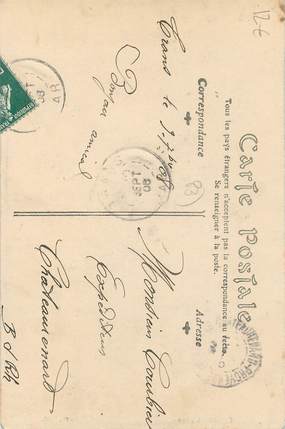 12 €
Carte Postale
Tous les pays étrangers n'acceptent pas la correspondance au recto.
Se renseigner à la poste.
Correspondance
Adresse
Trans le 3-7bre 08
Bonjour amical
83
SEPT
08
Monsieur
Expéditeur
Chateaurenard
B d Rh